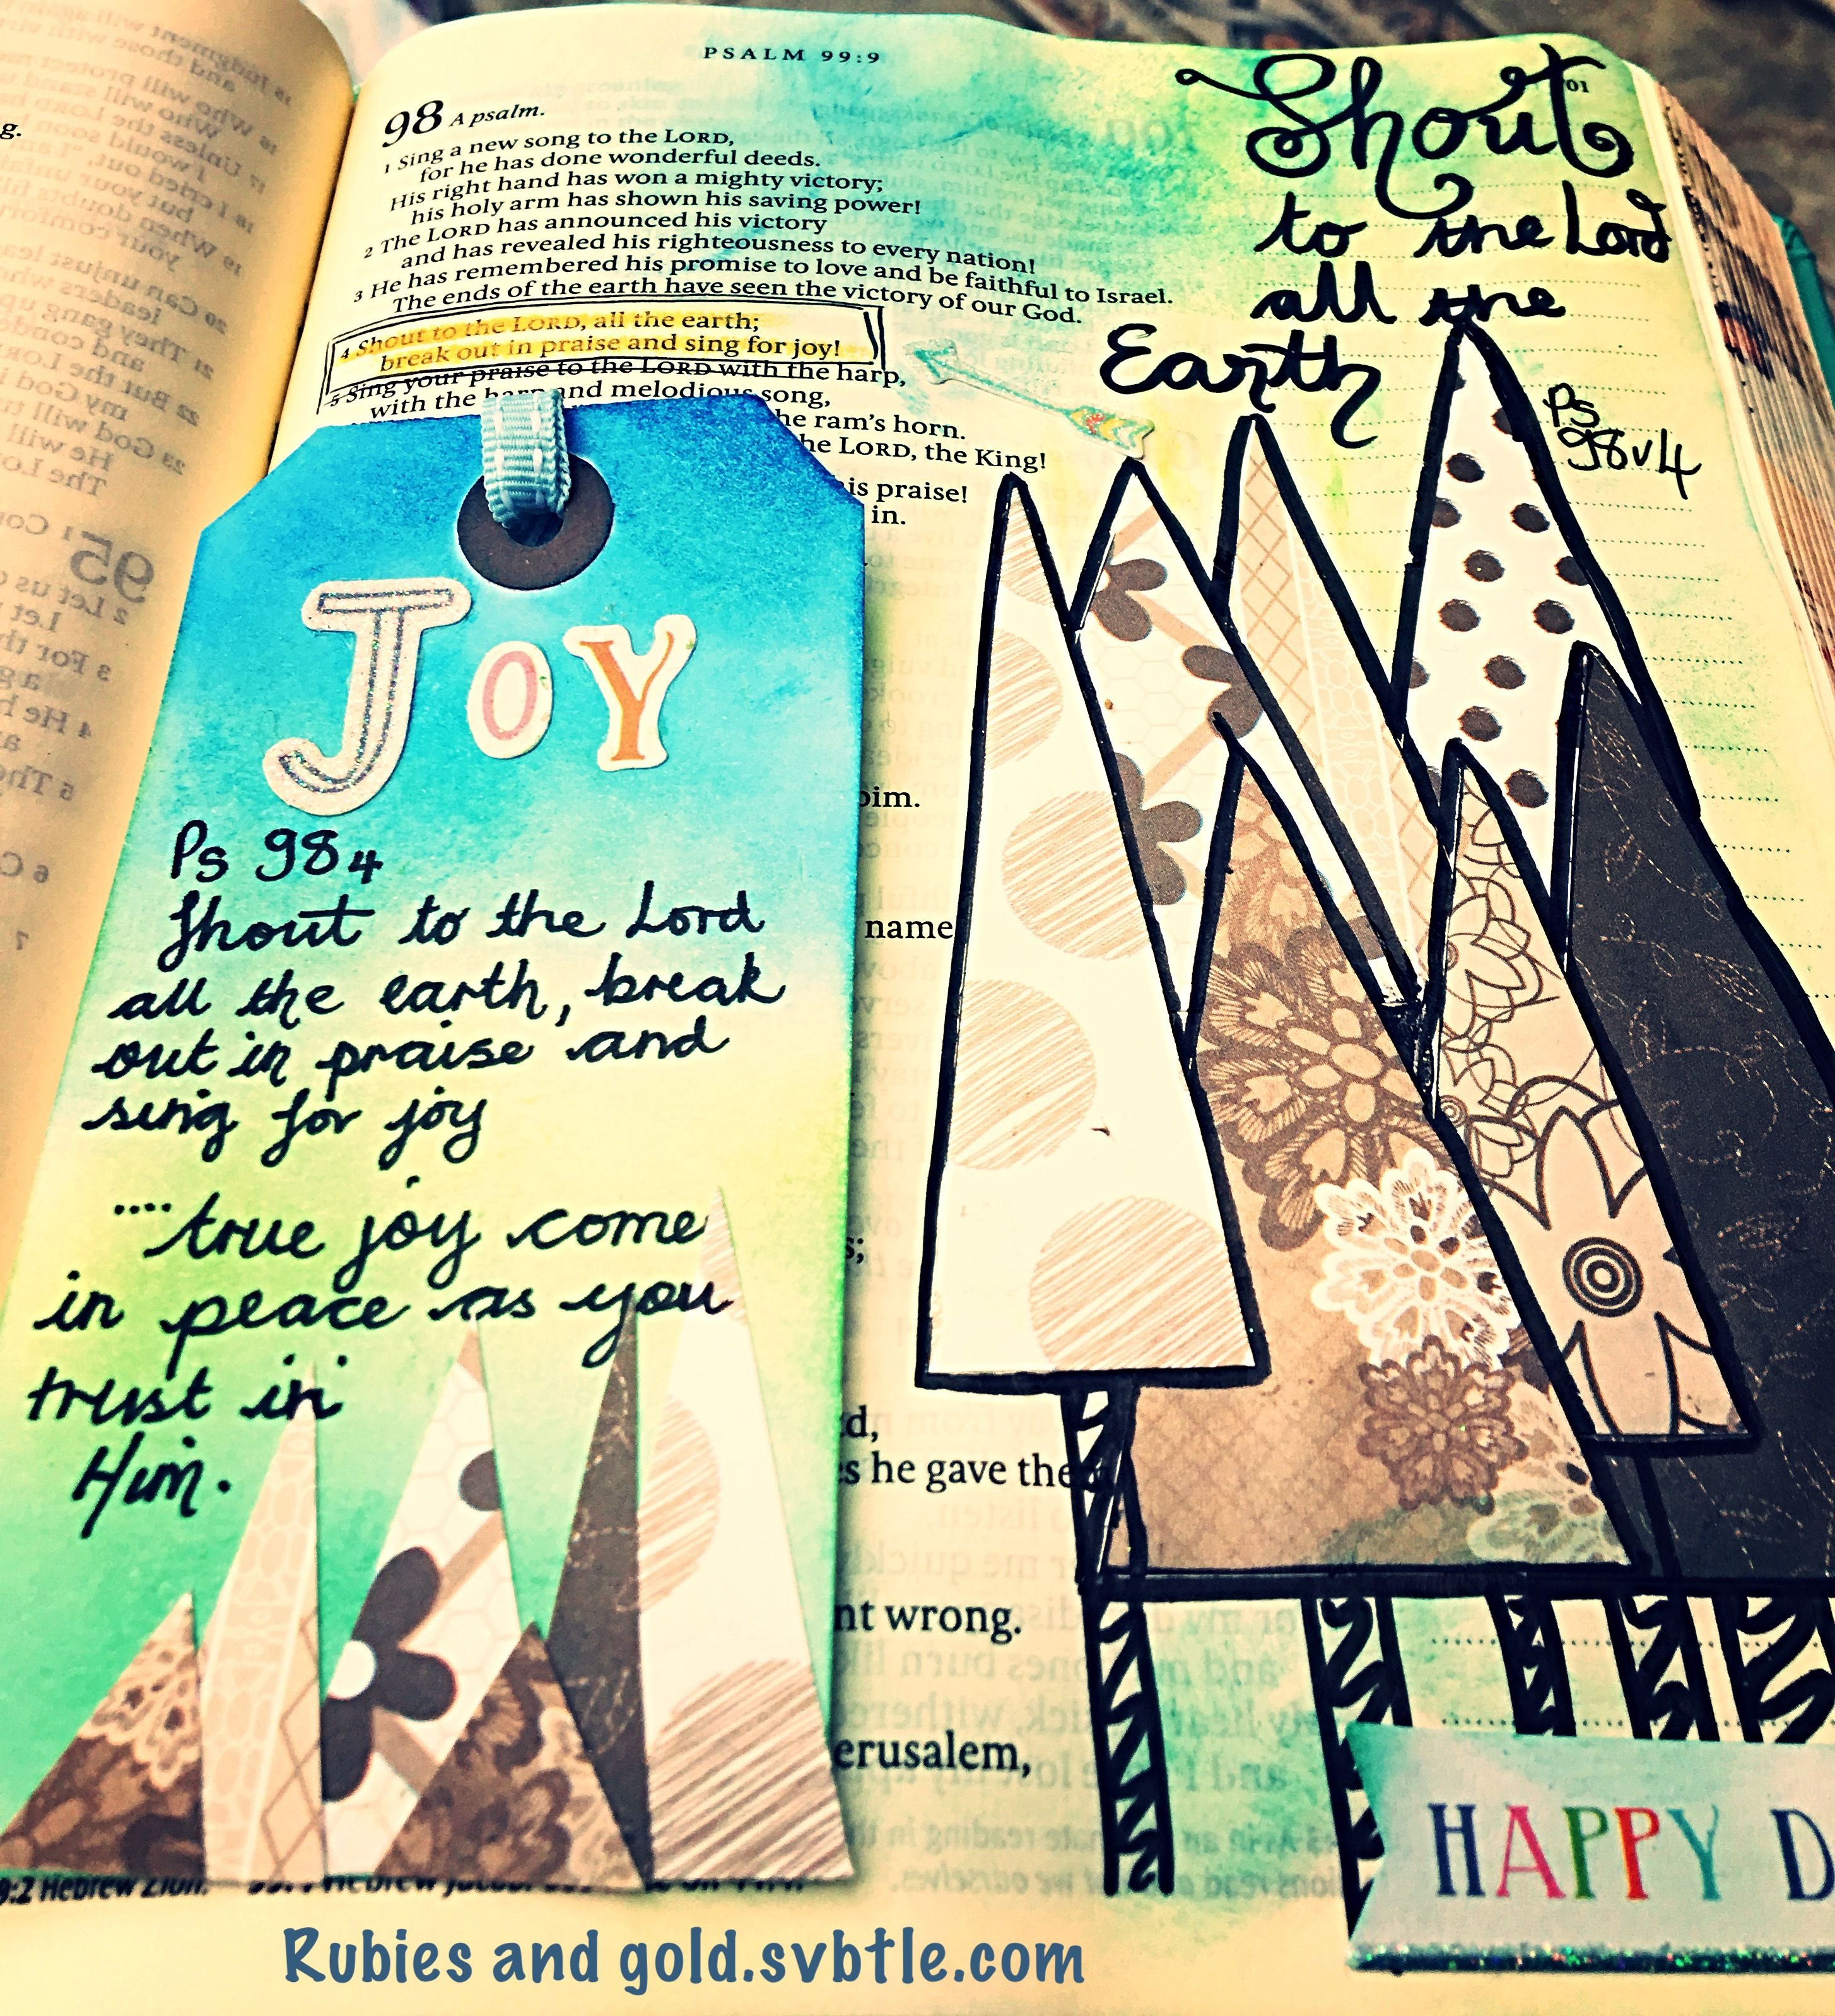 PSALM 99:9
98 A psalm.
1 Sing a new song to the LORD,
for he has done wonderful deeds.
His right hand has won a mighty victory;
his holy arm has shown his saving power!
2 The LORD has announced his victory
and has revealed his righteousness to every nation!
3 He has remembered his promise to love and be faithful to Israel.
The ends of the earth have seen the victory of our God.
4 Shout to the LORD, all the earth;
break out in praise and sing for joy!
5 Sing your praise to the LORD with the harp,
with the harp and melodious song,
he ram's horn.
he LORD, the King!
is praise!
in.
name
he gave the
nt wrong.
erusalem,
Shout
to the Lord
all the
Earth
Ps
98v4
JOY
Ps 98 4
Shout to the Lord
all the earth, break
out in praise and
sing for joy
....true joy come
in peace as you
trust in
Him.
HAPPY D
9:2 Hebrew Zion.
Rubies and gold.svbtle.com